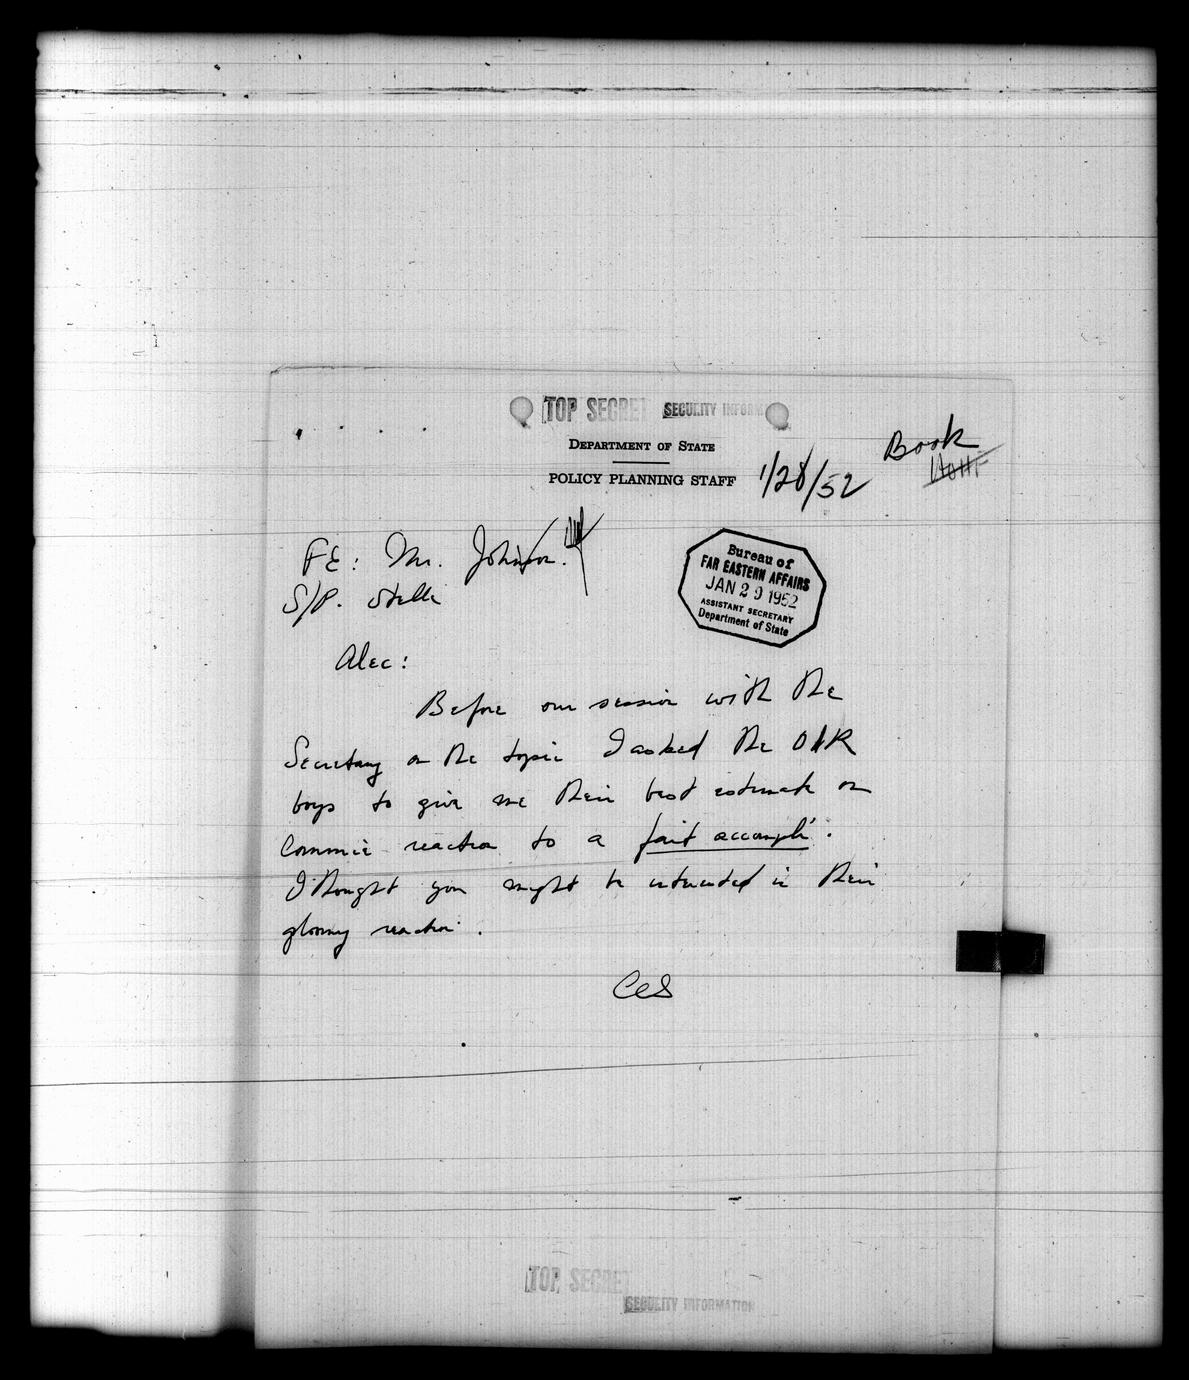 TOP SECRET SECURITY INFORM
DEPARTMENT OF STATE
POLICY PLANNING STAFF
1/28/52
Book
FE: Mr. Johnson.
S/P. Stelle
Bureau of
FAR EASTERN AFFAIRS
JAN 29 1952
ASSISTANT SECRETARY
Department of State
Alec:
Before our session with the
Secretary on the topic I asked the OIR
boys to give me their best estimate on
Commie reaction to a fait accompli.
I thought you might be interested in their
gloomy reaction.
CCS
TOP SECRET
SECURITY INFORMATION